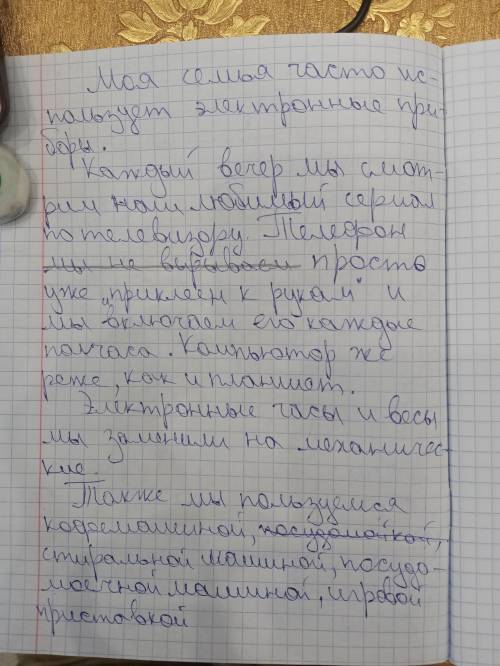 Моя семья часто ис-
пользует электронные при-
боры.
Каждый вечер мы смот-
рим наш любимый сериал
по телевизору. Телефон
мы не вырываем просто
уже "приклеен к рукам" и
мы включаем его каждые
полчаса. Компьютор же
реже, как и планшет.
Электронные часы и весы
мы заменили на механичес-
кие.
Также мы пользуемся
кофемашиной, посудомойкой,
стиральной машиной, посудо-
моечной машиной, игровой
приставкой